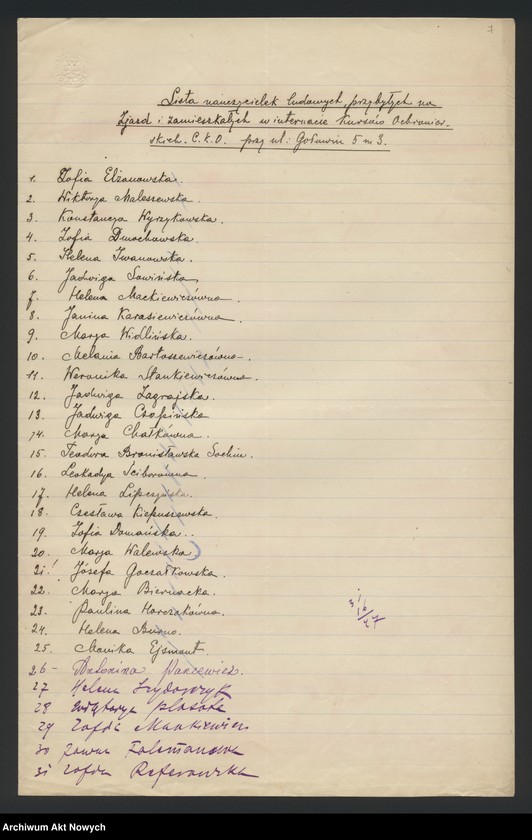 7
Lista nauczycielek ludowych, przybyłych na
Zjazd i zamieszkałych w internacie Kursów Ochroniar-
skich. C.K.O. przy ul:
1. Zofia Elżanowska.
2. Wiktorya Maleszewska.
3. Konstancya Wyrzykowska.
4. Zofia Dmochowska.
5. Helena Iwanowska.
6. Jadwiga Sawińska
7. Helena Mackiewiczówna.
8. Janina Karasiewiczówna.
9. Marya Widlińska.
10. Melania Bartoszewiczówna.
11. Weronika Stankiewiczówna.
12. Jadwiga Zagrajska.
13. Jadwiga Czapińska
14. Marya Chałkówna.
15. Teodora Bronisławska
16. Leokadya Sciborówna.
17. Helena Lipczyńska.
18. Czesława Kiepuszewska.
19. Zofia Domańska.
20. Marya Walewska.
21. Józefa Goczałkowska.
22. Marya Biernacka.
23. Paulina Horczakówna.
24. Helena Burno.
25. Monika Ejsmont.
26 - Antonina Pancewicz.
27 Helena Szydorczyk
28 Wiktorya
29 Zofia Mankiewicz
30
31 Zofia
Archiwum Akt Nowych